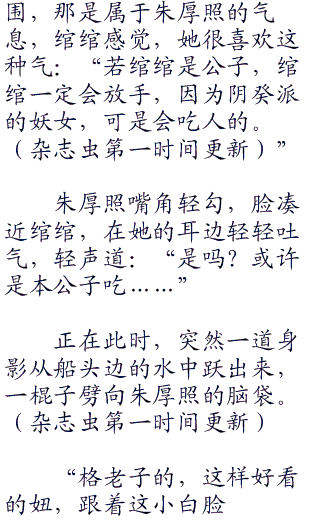 围，那是属于朱厚照的气
息，绾绾感觉，她很喜欢这
种气：“若绾绾是公子，绾
绾一定会放手，因为阴癸派
的妖女，可是会吃人的。
（杂志虫第一时间更新）”
朱厚照嘴角轻勾，脸凑
近绾绾，在她的耳边轻轻吐
气，轻声道：“是吗？或许
是本公子吃……”
正在此时，突然一道身
影从船头边的水中跃出来，
一棍子劈向朱厚照的脑袋。
（杂志虫第一时间更新）
“格老子的，这样好看
的妞，跟着这小白脸